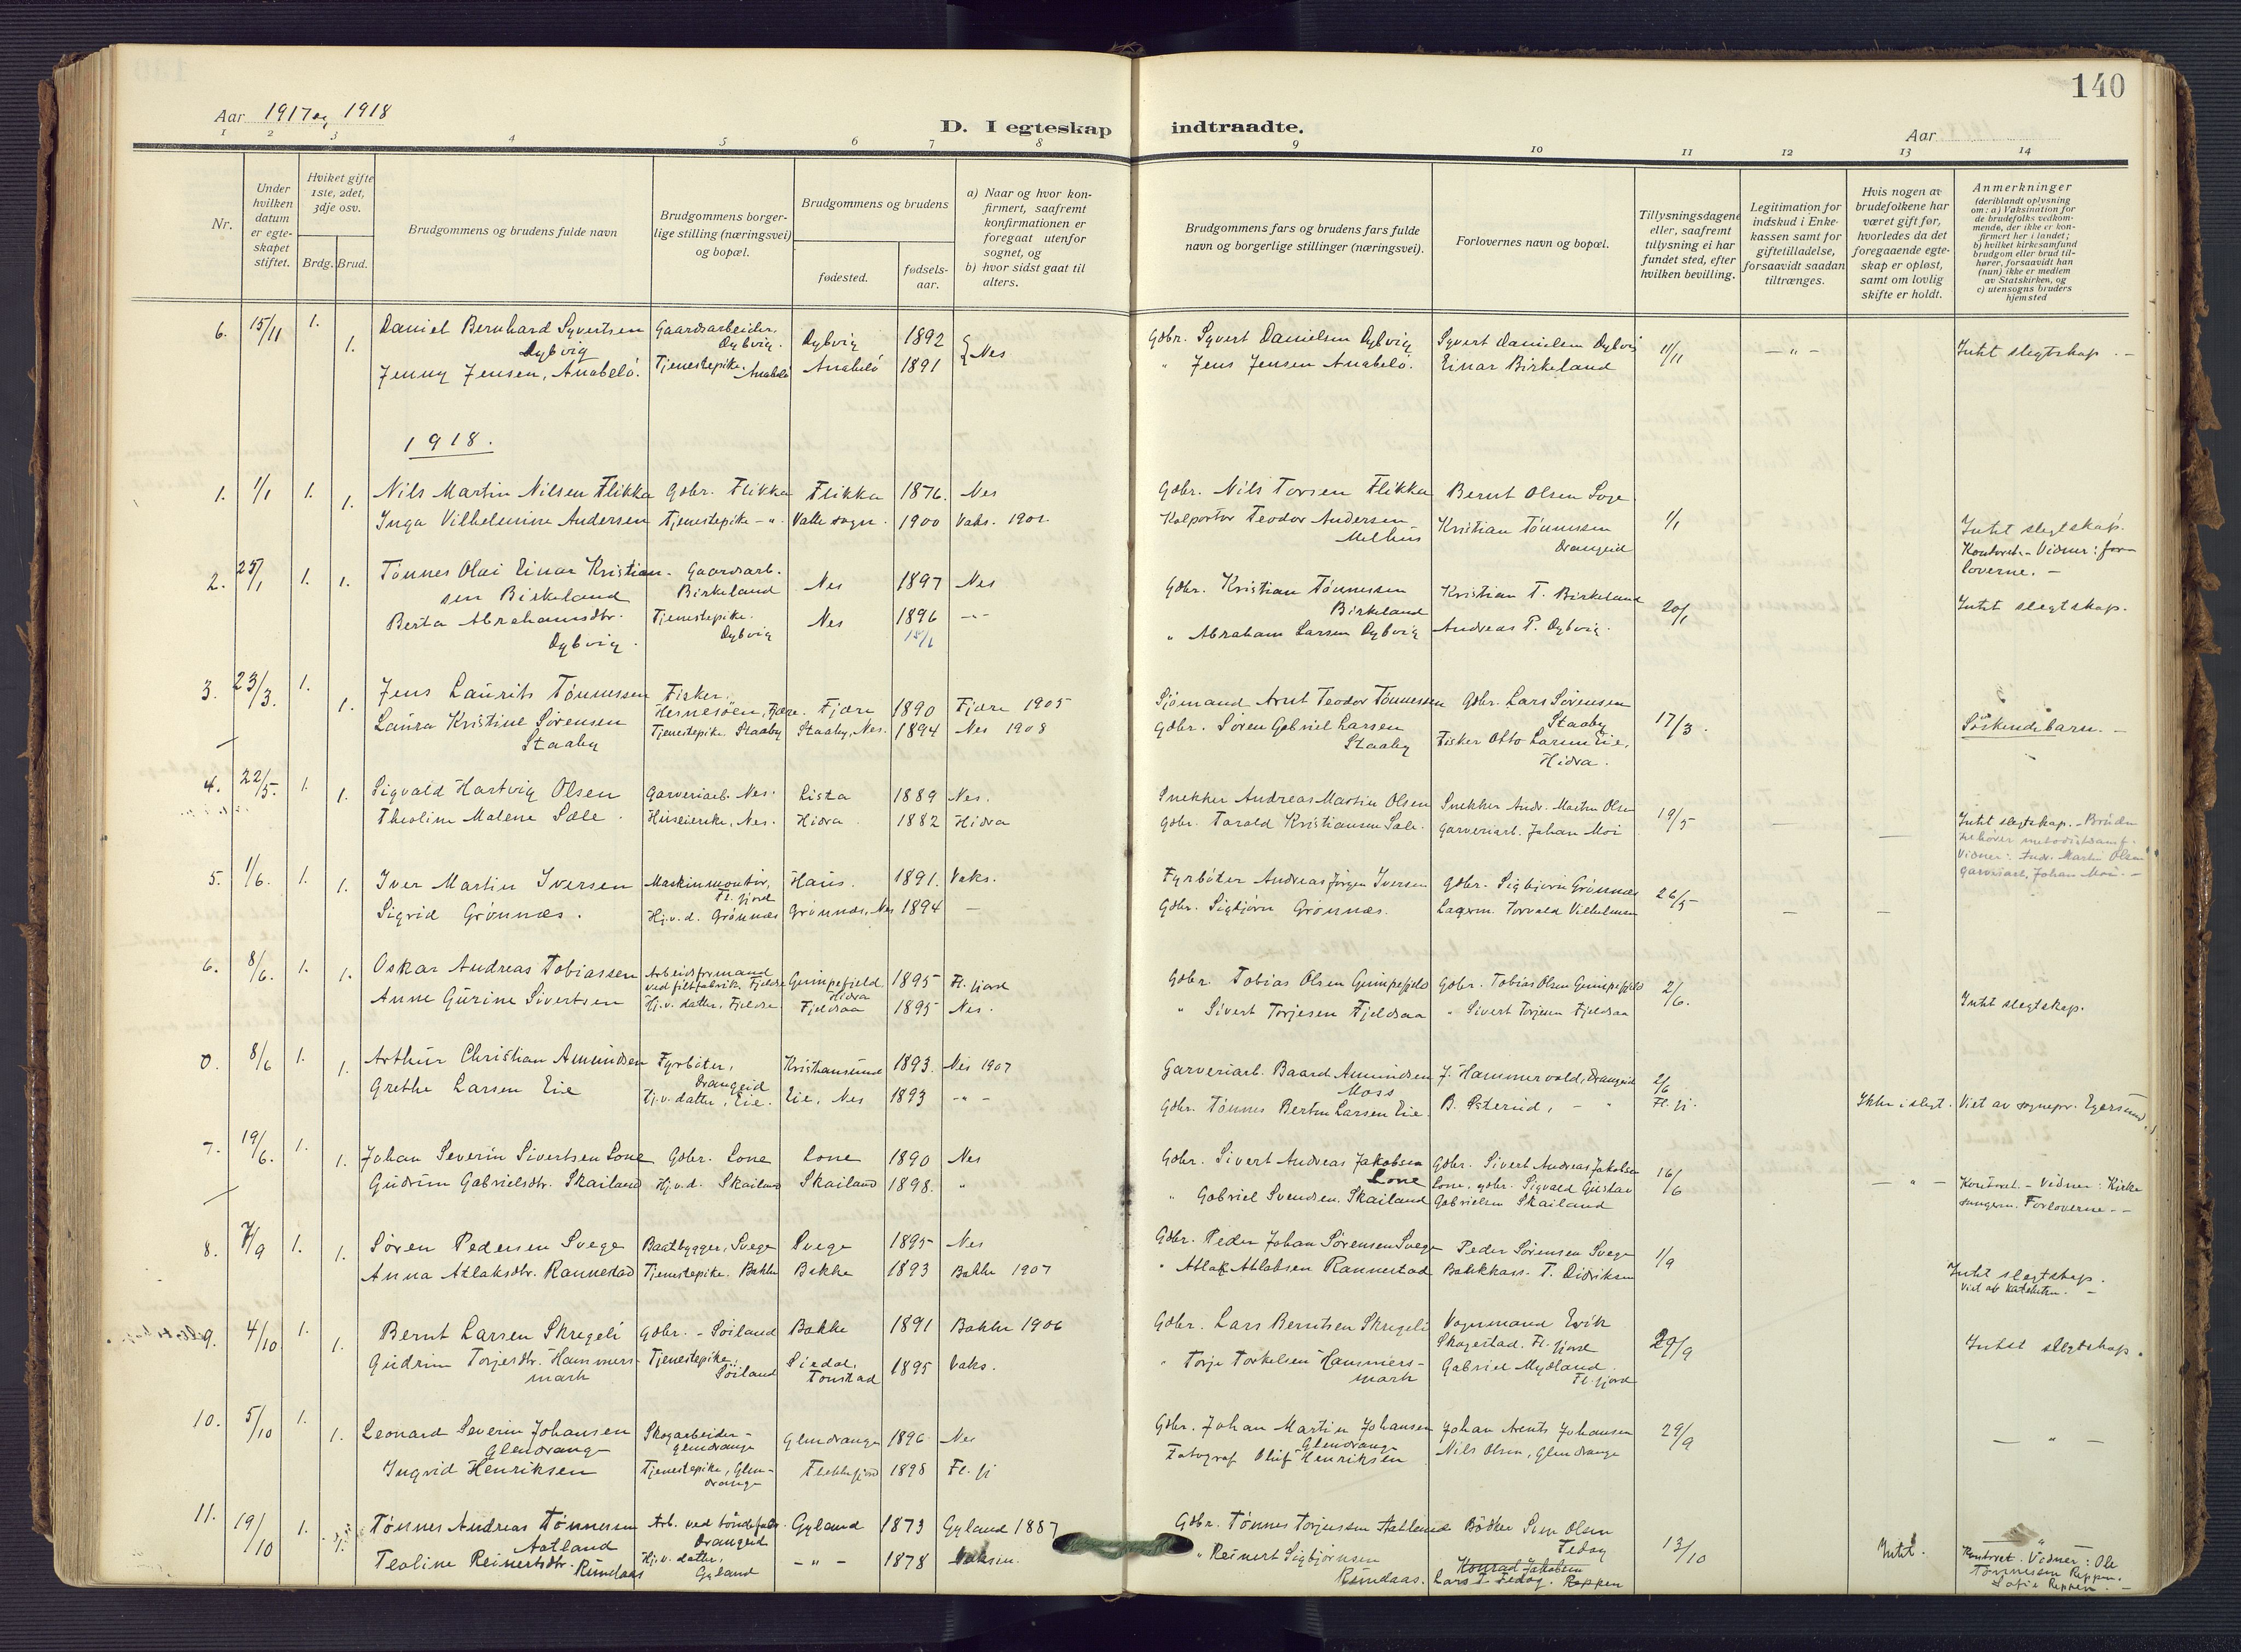 140
Aar 1917 og 1918
D. I egteskap indtraadte.
Aar
1 2 3 4 5 6 7 8 9 10 11 12 13 14
Nr.
Under hvilken datum er egteskapet stiftet.
Hvilket gifte 1ste, 2det, 3dje osv.
Brdg. Brud.
Brudgommens og brudens fulde navn
Brudgommens borgerlige stilling (næringsvei) og bopæl.
Brudgommens og brudens
fødested.
fødselsaar.
a) Naar og hvor konfirmert, saafremt konfirmationen er foregaat utenfor sognet, og
b) hvor sidst gaat til alters.
Brudgommens fars og brudens fars fulde navn og borgerlige stillinger (næringsvei).
Forlovernes navn og bopæl.
Tillysningsdagene eller, saafremt tillysning ei har fundet sted, efter hvilken bevilling.
Legitimation for indskud i Enkekassen samt for giftetilladelse, forsaavidt saadan tiltrænges.
Hvis nogen av brudefolkene har været gift før, hvorledes da det foregaaende egteskap er opløst, samt om lovlig skifte er holdt.
Anmerkninger (deriblandt oplysning om: a) Vaksination for de brudefolks vedkommende, der ikke er konfirmert her i landet; b) hvilket kirkesamfund brudgom eller brud tilhører, forsaavidt han (hun) ikke er medlem av Statskirken, og c) utensogns bruders hjemsted
6. 15/11 1. Daniel Bernhard Syvertsen Dybvig Gaardsarbeider. Dybvig. Dybvig 1892 Nes Gdbr. Syvert Danielsen Dybvig Syvert Danielsen Dybvig 11/11 — " — Intet slegtskap. —
1. Jenny Jensen, Anabelö. Tjenestepike. Anabelö Anabelö 1891 " Jens Jensen Anabelö. Einar Birkeland
1918.
1. 1/1 1. Nils Martin Nilsen Flikka Gdbr. Flikka Flikka 1876. Nes Gdbr. Nils Torsen Flikka Bernt Olsen 1/1
1. Inga Vilhelmine Andersen Tjenestepike - " Valle sogn. 1900 Vaks. 1901. Kolportör Teodor Andersen Melhus Kristian Tönnessen Drangeid Intet slegtskap. Kontoret. - Vidner: forloverne. —
2. 25/1 1. 1. Tönnes Olai Einar Kristiansen Birkeland Gaardsarb. Birkeland Nes 1897 Nes Gdbr. Kristian Tönnessen Birkeland Kristian T. Birkeland 20/1 Intet slegtskap.
Berta Abrahamsdtr. Dybvig. Tjenestepike. Dybvig Nes 1896 — " Abraham Larsen Dybvig Andreas P. Dybvig.
3. 23/3. 1. Jens Laurits Tönnessen Fisker. Hesnesöen, Fjære. Fjære 1890 Fjære 1905 Sjömand Arnt Teodor Tönnessen Gdbr. Lars Sörensen Staaby 17/3. Söskendebarn. —
1. Laura Kristine Sörensen Staaby Tjenestepike Staaby Staaby, Nes. 1894 Nes 1908 Gdbr. Sören Gabriel Larsen Staaby Fisker Otto Larsen Eie, Hidra.
4. 22/5. 1. 1. Sigvald Hartvig Olsen Garveriarb. Nes. Lista 1889 Nes. Snekker Andreas Martin Olsen Snekker Andr. Martin Olsen 19/5 —
Theoline Malene Sæle. Huseierske, Nes. Hidra 1882 Hidra Gdbr. Tarald Kristiansen Sæle. Garveriarb. Johan Moi Intet slegtskap. - Bruden tilhører metodistsamf. Vidner: Andr. Martin Olsen garveriarb. Johan Moi. —
5. 1/6. 1. 1. Iver Martin Iversen Maskinmontör, Fl.fjord Haus. 1891. Vaks. Fyrböter Andreas Jörgen Iversen Gdbr. Sigbjörn Grönnæs 26/5 — —
Sigrid Grönnæs. Hj.v.d. Grönnæs Grönnæs, Nes 1894 — Gdbr. Sigbjörn Grönnæs. Lagerm. Torvald Vilhelmsen
6. 8/6. 1. 1. Oskar Andreas Tobiassen Arbeidsformand ved filtfabrik, Fjeldse Gimpefjeld Hidra 1895 Fl.fjord Gdbr. Tobias Olsen Gimpefjeld Gdbr. Tobias Olsen Gimpefjeld 2/6.
Anne Gurine Sivertsen Hj.v. datter, Fjeldse Fjeldsaa 1895 Nes. " Sivert Torjesen Fjeldsaa " Sivert Torjesen Fjeldsaa Intet slegtskap.
0. 8/6 1. 1. Arthur Christian Amundsen Fyrböter, Drangeid Kristiansund 1893. Nes 1907 Garveriarb. Baard Amundsen Moss J. Hammervold, Drangeid 2/6 Fl.fj.
Grethe Larsen Eie Hj.v. datter, Eie. Eie, Nes 1893 - " - Gdbr. Tönnes Bertin Larsen Eie. B. Østerud, — " Ikke i slegt. Viet av sognepr. Egersund.
7. 19/6. 1. 1. Johan Severin Sivertsen Lone Gdbr. Lone Lone 1890 Nes Gdbr. Sivert Andreas Jakobsen Lone Gdbr. Sivert Andreas Jakobsen Lone, gdbr. Sigvald Gustav Gabrielsen Skailand 16/6 — " —
Gudrun Gabrielsdtr. Skailand Hj.v.d. Skailand Skailand 1898. " " Gabriel Svendsen Skailand Kontoret. - Vidner: Kirkesangern. Forloverne. —
8. 7/9 1. 1. Sören Pedersen Svege Baatbygger, Svege Svege 1895 Nes Gdbr. Peder Johan Sörensen Svege Peder Sörensen Svege 1/9
Anna Atlaksdtr. Rannestad Tjenestepike. Bakke Bakke 1893 Bakke 1907 " Atlak Atlaksen Rannestad Bankkass. T. Didriksen Intet slegtskap. Viet av kateketen. —
9. 4/10 1. 1. Bernt Larsen Skregeli Gdbr. - Söiland Bakke 1891 Bakke 1906 Gdbr. Lars Berntsen Skregeli Vognmand Erik Skogestad. Fl.fjord 29/9 Intet slegtskap.
Gudrun Torjesdtr. Hammersmark Tjenestepike. Söiland Siedal. Tonstad 1895 Vaks. " Torje Torkelsen Hammersmark Gabriel Mydland. Fl.fjord
10. 5/10 1. 1. Leonard Severin Johansen Glendrange Skogarbeider - Glendrange Glendrange 1896 Nes Gdbr. Johan Martin Johansen Glendrange Johan Arents Johansen 29/9 — " —
Ingrid Henriksen Tjenestepike, Glendrange Flekkefjord 1898 Fl.fj Fotograf Oluf Henriksen Nils Olsen, Glendrange
11. 19/10 1. 1. Tönnes Andreas Tönnesen Aatland Arb. ved töndefabr. Drangeid Gyland 1873 Gyland 1887 Gdbr. Tönnes Torjussen Aatland Bödker Sem Olsen Fedog 13/10 Intet.
Teoline Reinertsdtr. Rundaas Hj.v. datter, Gyland — " — 1878 Vaksin. " Reinert Sigbjörnsen Rundaas. Konrad Jakobsen Reppen Lars T. Fedog. Kontoret. Vidner: Ole Tönnesen Reppen. Sofie Reppen. —